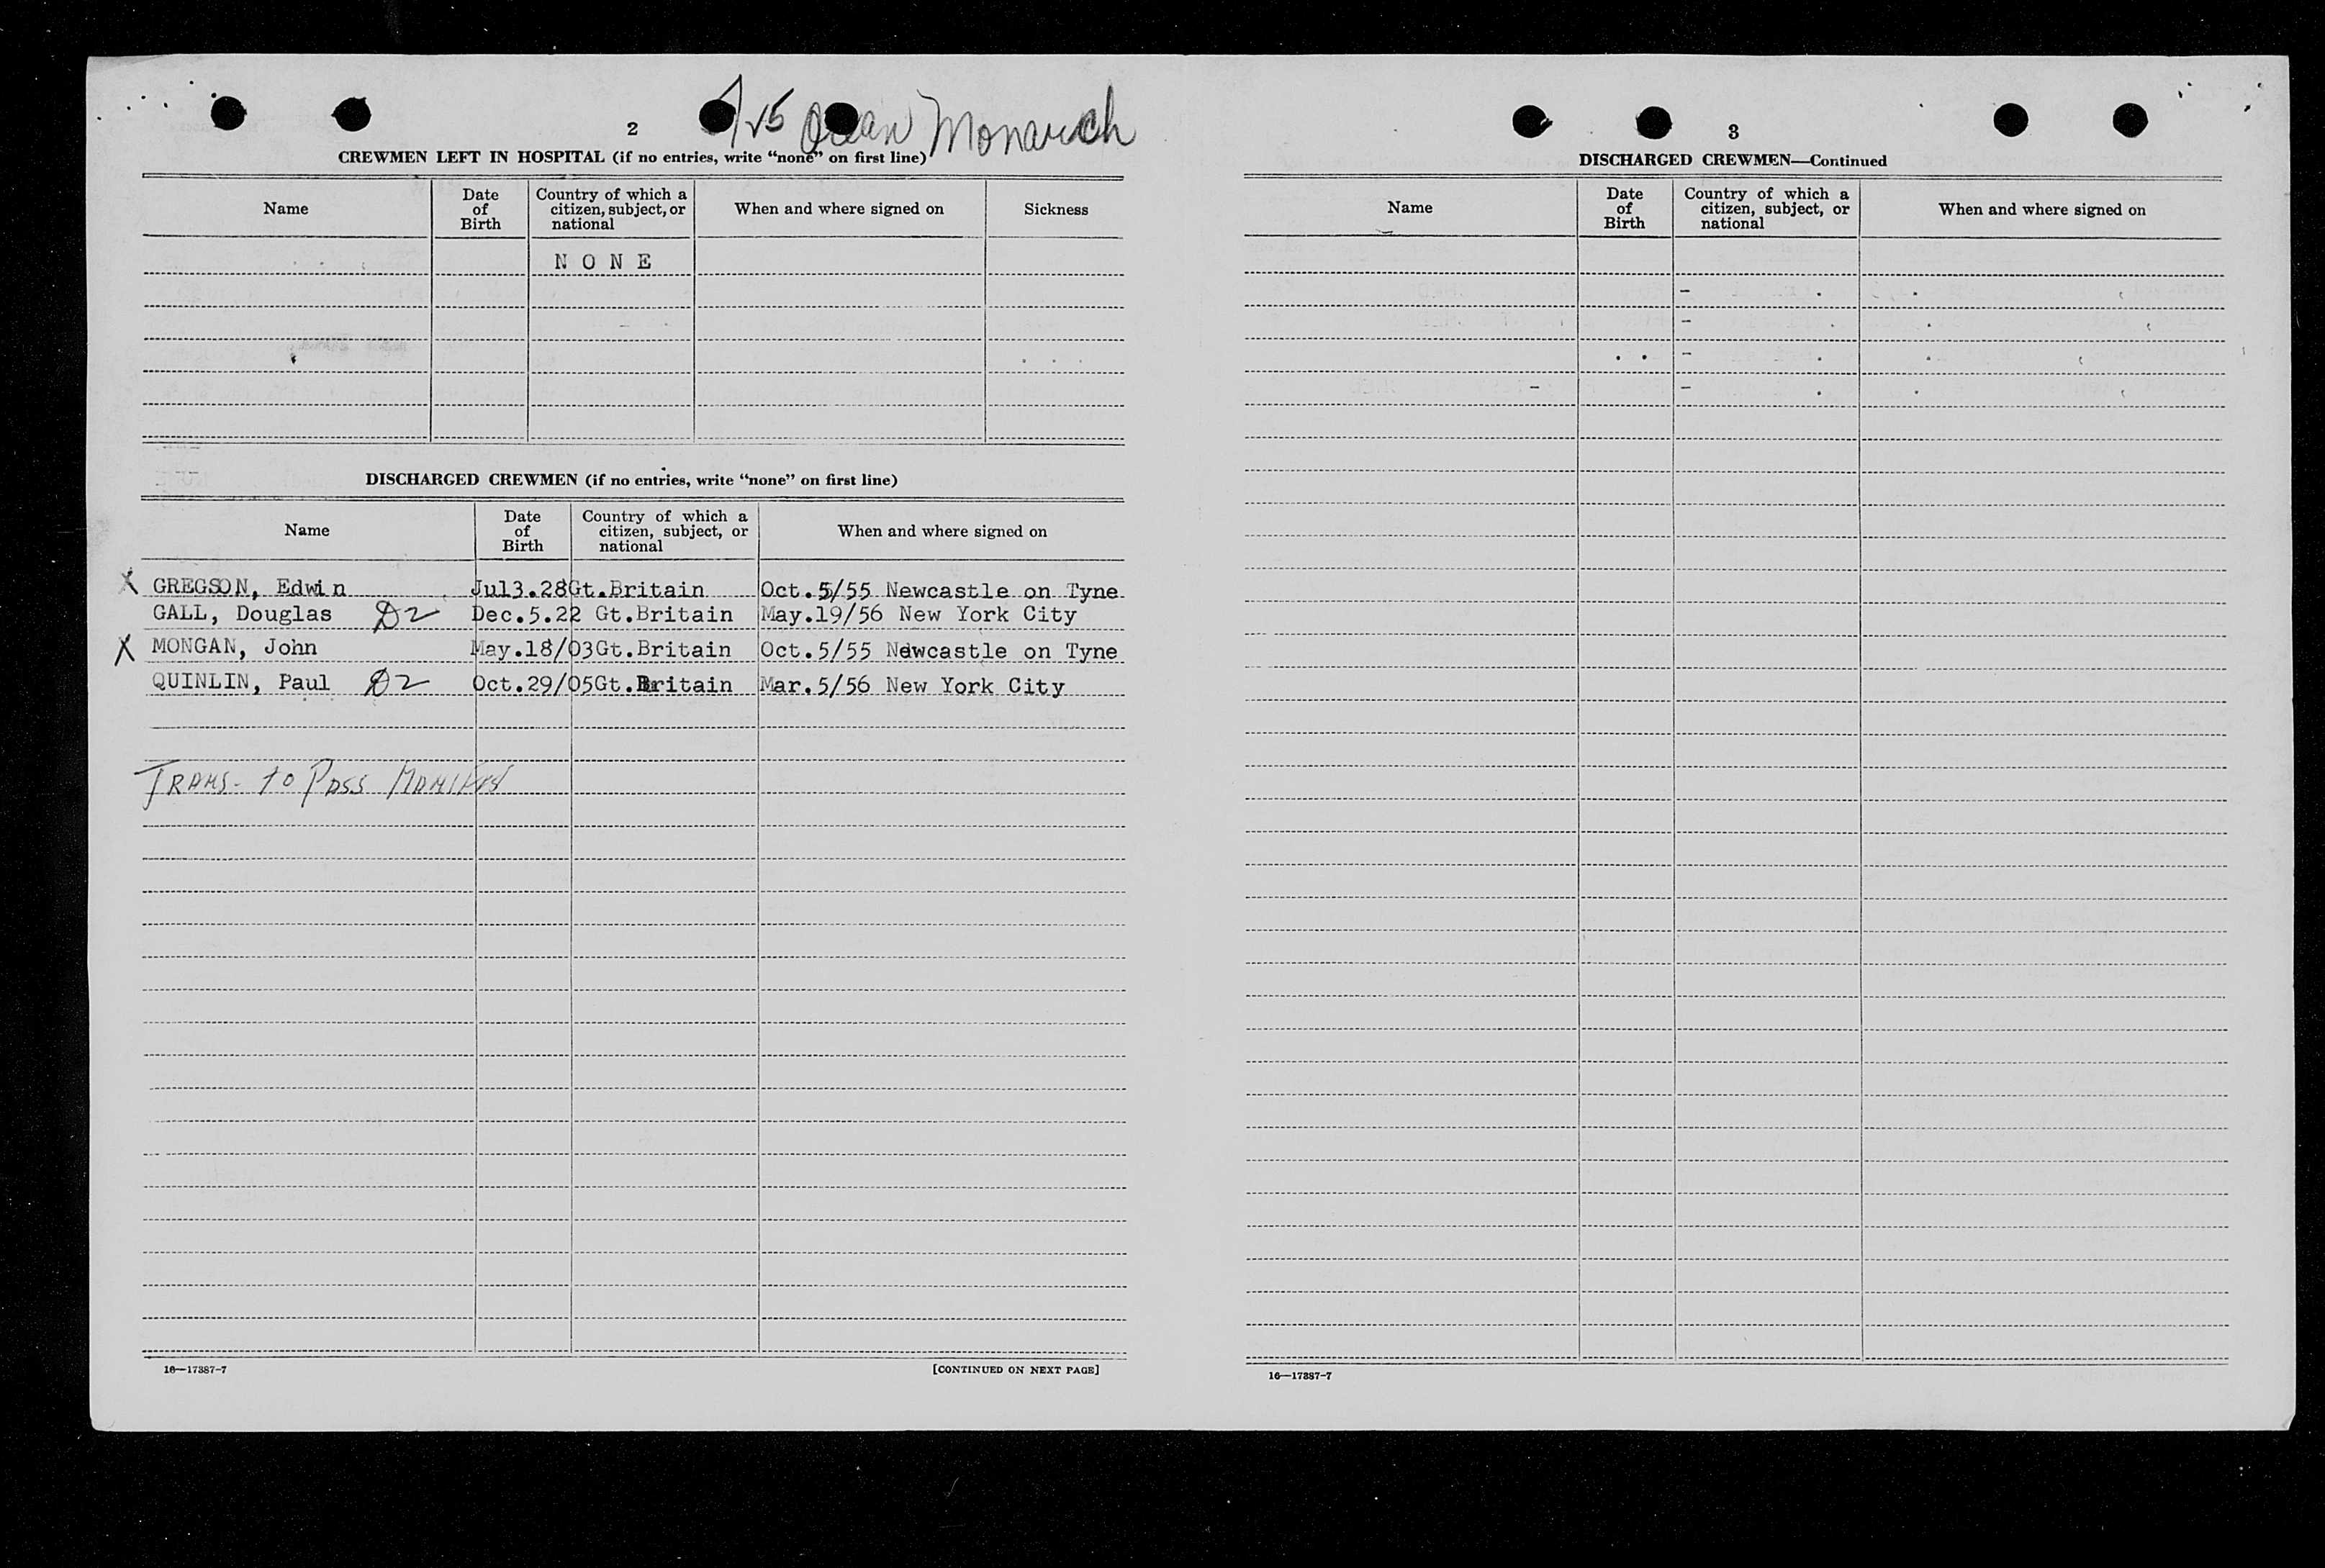 2
Ocean Monarch
CREWMEN LEFT IN HOSPITAL (if no entries, write "none" on first line)
Name Date of Birth Country of which a citizen, subject, or national When and where signed on Sickness
N O N E
DISCHARGED CREWMEN (if no entries, write "none" on first line)
Name Date of Birth Country of which a citizen, subject, or national When and where signed on
X GREGSON, Edwin Jul3.28 Gt.Britain Oct.5/55 Newcastle on Tyne
GALL, Douglas D2 Dec.5.22 Gt.Britain May.19/56 New York City
X MONGAN, John May.18/03 Gt.Britain Oct.5/55 Newcastle on Tyne
QUINLIN, Paul D2 Oct.29/05 Gt.Britain Mar.5/56 New York City
TRANS- TO PASS MANIFEST
16—17387-7 [CONTINUED ON NEXT PAGE]
3
DISCHARGED CREWMEN—Continued
Name Date of Birth Country of which a citizen, subject, or national When and where signed on
16—17387-7